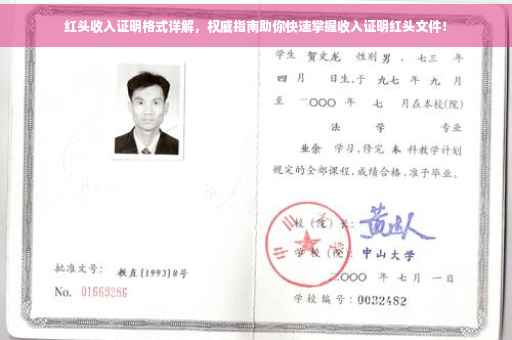 红头收入证明格式详解，权威指南助你快速掌握收入证明红头文件！
学生 贺文龙 性别 男，七三 年
四 月 日生，于 九七 年 九 月
至 二〇〇〇 年 七 月在本校(院)
法 学 专业
业余 学习，修完 本 科教学计划
规定的全部课程，成绩合格，准予毕业。
校(院)长：
学校(院)：中山大学
二〇〇〇 年 七 月 一 日
批准文号：教直[1993]8号
No. 01669286
学校编号：0032482